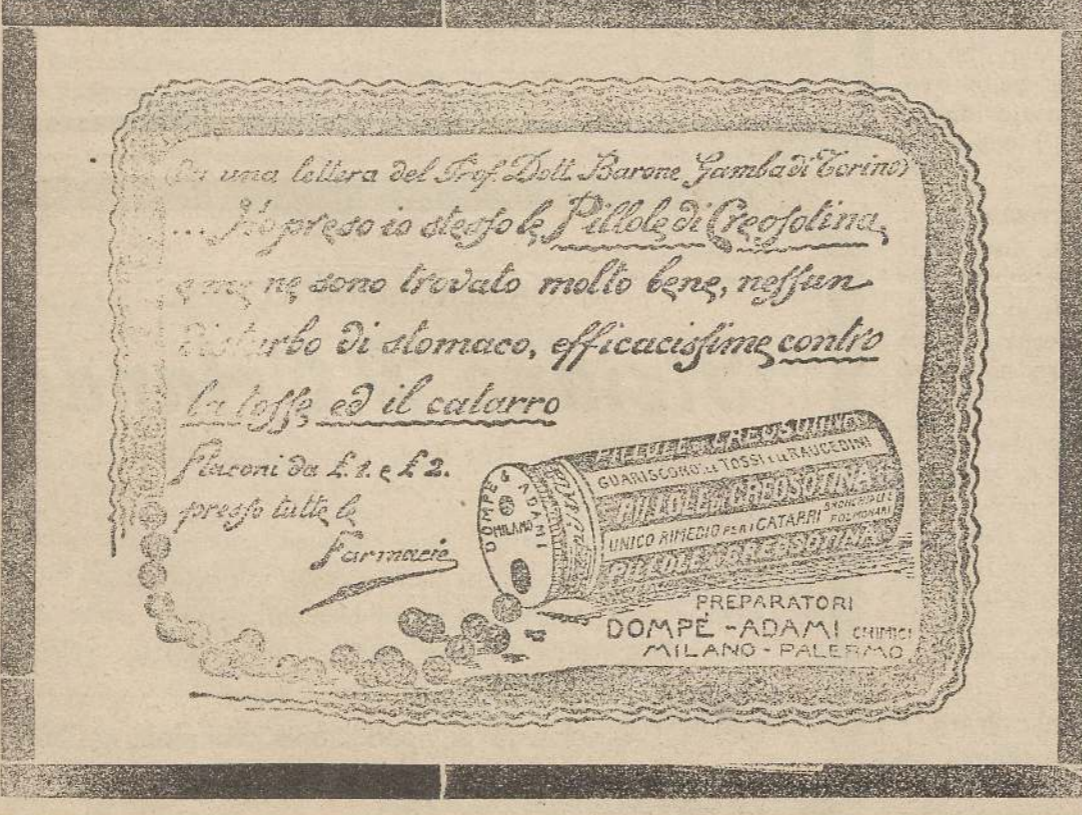 (Da una lettera del Prof. Dott. Barone Gamba di Torino)
... Ho preso io stesso le Pillole di Creosotina,
e me ne sono trovato molto bene, nessun
disturbo di stomaco, efficacissime contro
la tosse ed il catarro
Flaconi da £. 1. e £ 2.
presso tutte le
Farmacie
DOMPÉ ADAMI
MILANO
PILLOLE DI CREOSOTINA
GUARISCONO LE TOSSI E LE RAUCEDINI
PILLOLE DI CREOSOTINA
UNICO RIMEDIO PER I CATARRI BRONCHIALI E POLMONARI
PILLOLE DI CREOSOTINA
PREPARATORI
DOMPÉ - ADAMI CHIMICI
MILANO - PALERMO